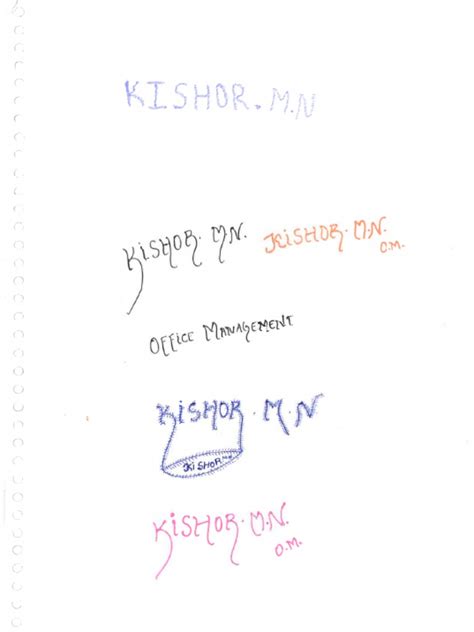 KISHOR. M.N
KiSHOR. M.N. KiSHOR. M.N.
O.M.
OFFice MANAGEMENT
KiSHOR. M.N
KiSHOR MN
KiSHOR. M.N.
O.M.